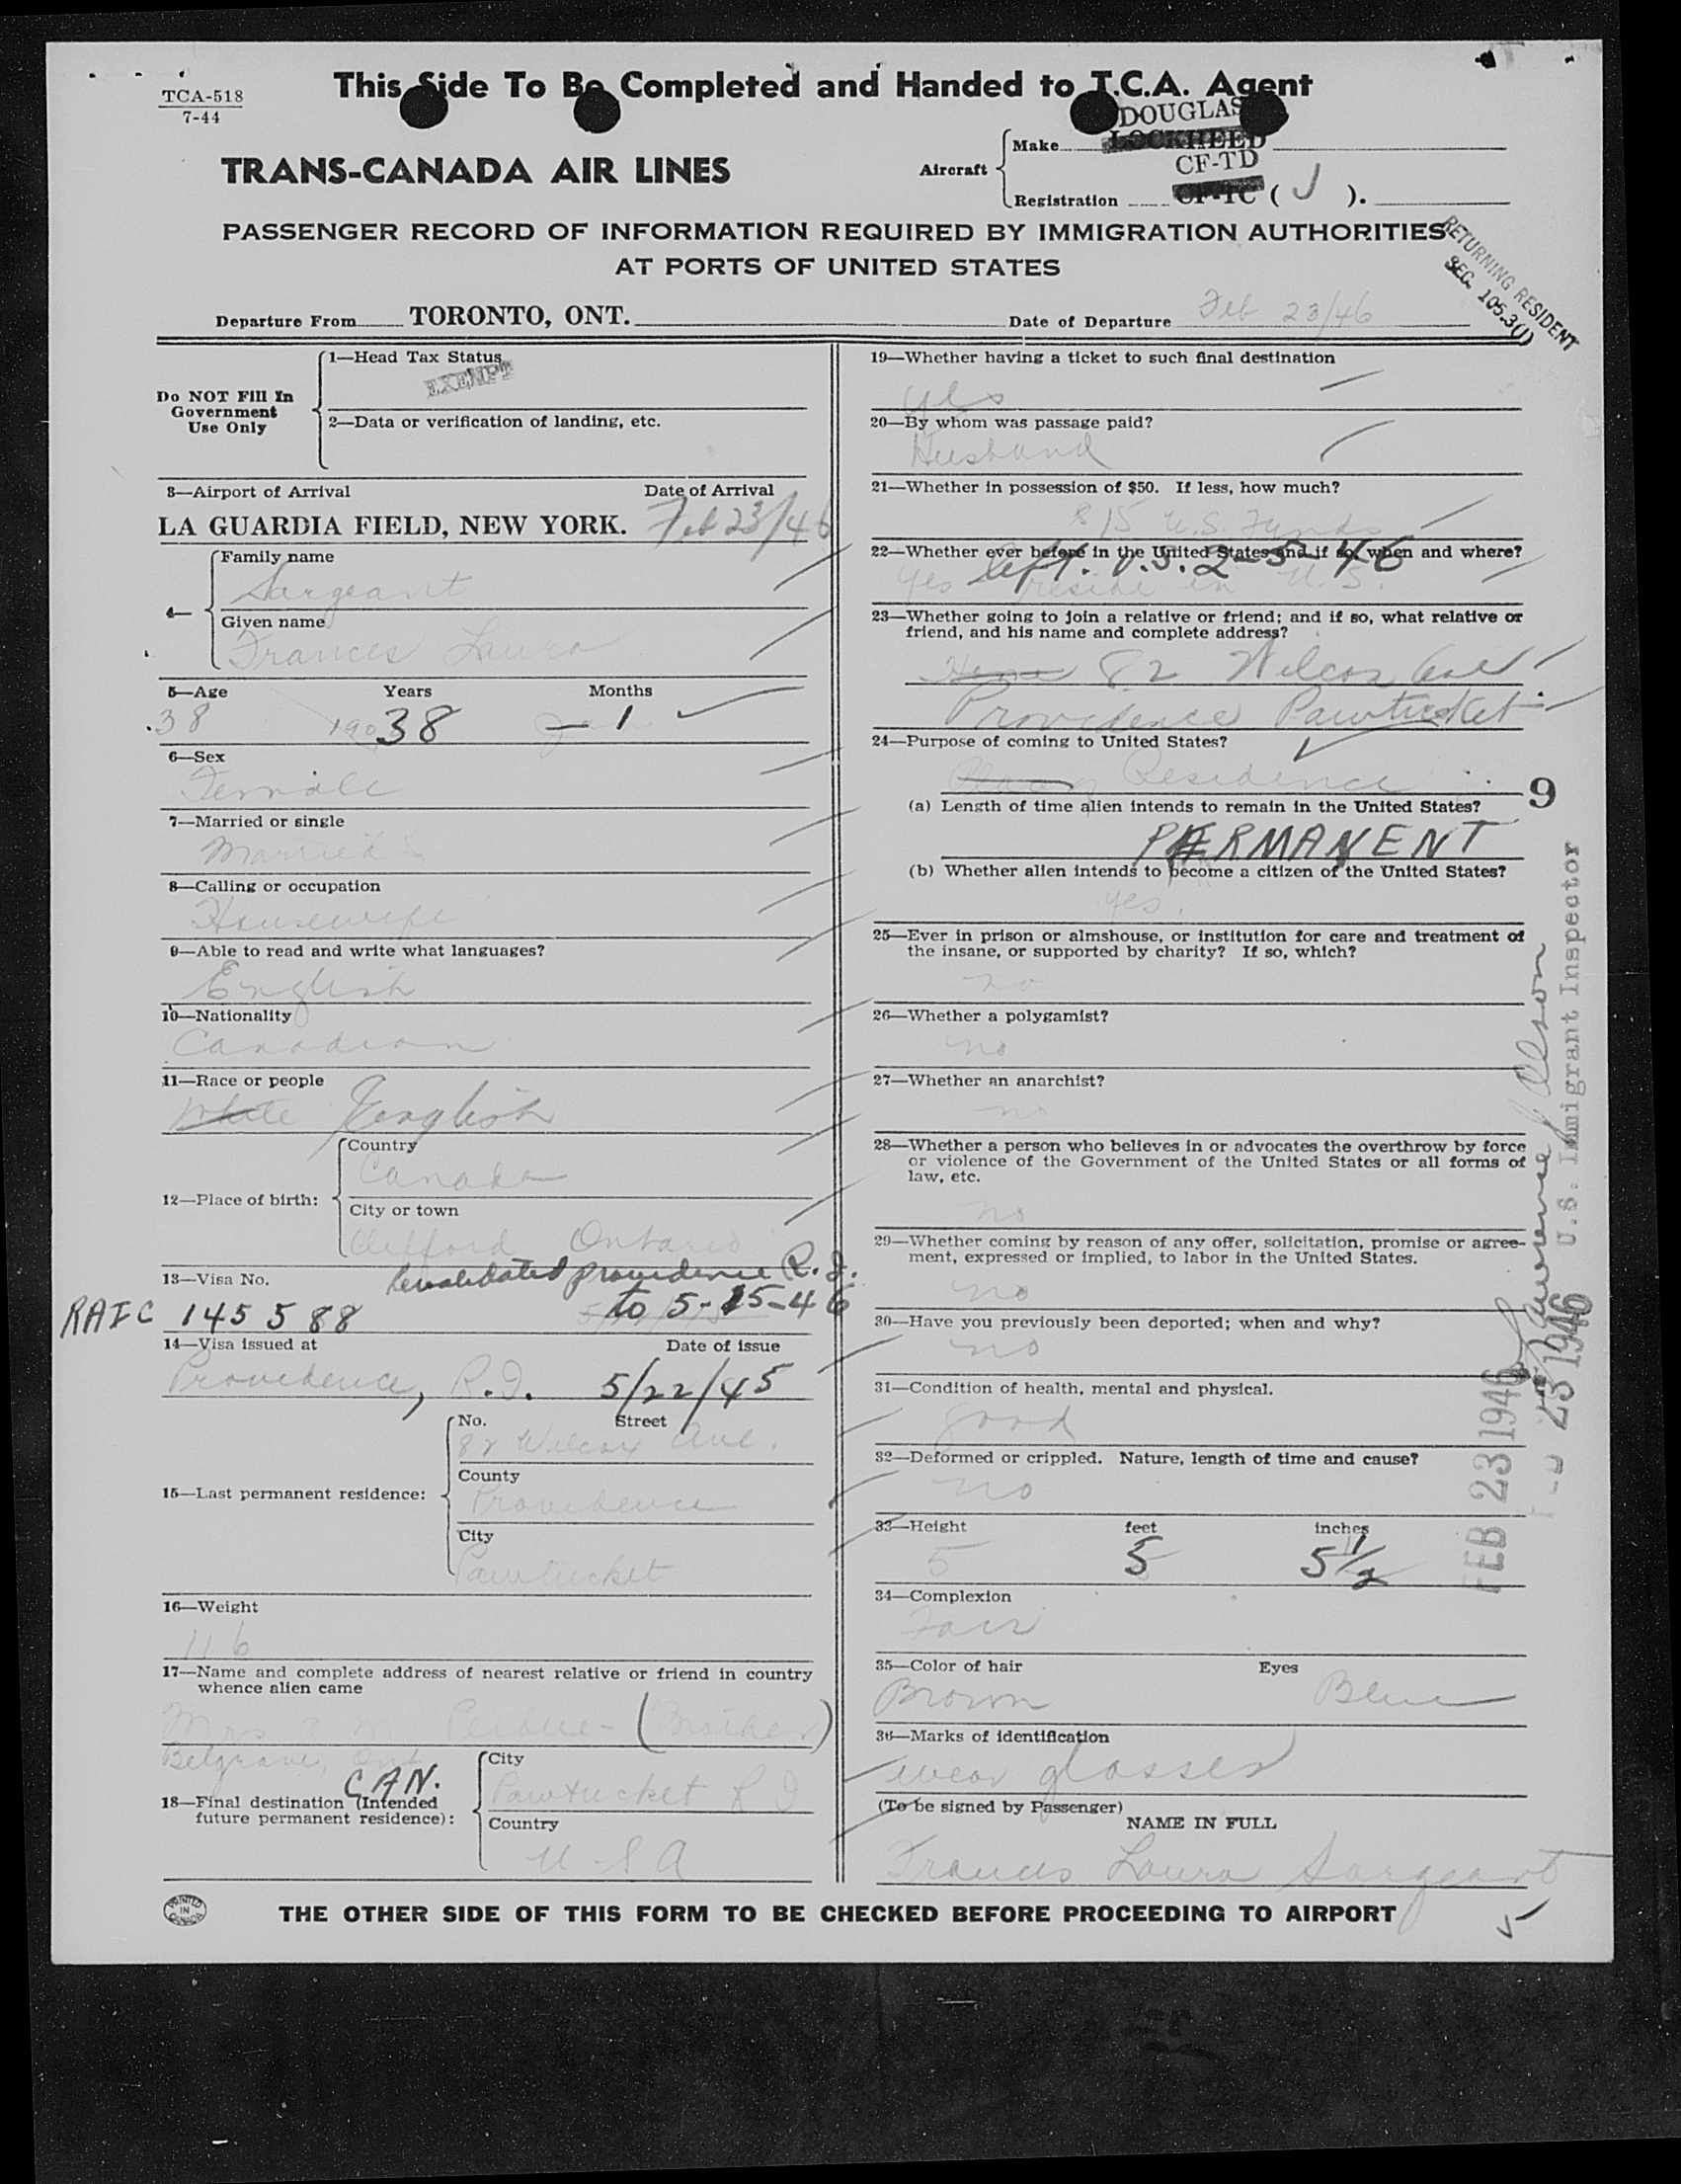 TCA-518
7-44
This Side To Be Completed and Handed to T.C.A. Agent
TRANS-CANADA AIR LINES
DOUGLAS
Aircraft
Make LOCKHEED
CF-TD
Registration CF-TC ( J ).
PASSENGER RECORD OF INFORMATION REQUIRED BY IMMIGRATION AUTHORITIES
AT PORTS OF UNITED STATES
RETURNING RESIDENT
SEC. 105.3(1)
Departure From TORONTO, ONT.
Date of Departure Feb 23/46
Do NOT Fill In
Government
Use Only
1—Head Tax Status
EXEMPT
2—Data or verification of landing, etc.
3—Airport of Arrival Date of Arrival
LA GUARDIA FIELD, NEW YORK. Feb 23/46
4—
Family name
Sargeant
Given name
Frances Laura
5—Age Years Months
38 38 — 1
6—Sex
Female
7—Married or single
Married
8—Calling or occupation
Housewife
9—Able to read and write what languages?
English
10—Nationality
Canadian
11—Race or people
White English
12—Place of birth:
Country
Canada
City or town
Clifford Ontario
13—Visa No. Revalidated providence R.I.
RAIC 145588 to 5-15-46
14—Visa issued at Date of issue
Providence, R.I. 5/22/45
15—Last permanent residence:
No. Street
82 Wilcox Ave.
County
Providence
City
Pawtucket
16—Weight
116
17—Name and complete address of nearest relative or friend in country
whence alien came
Mrs Perdue - (Mother)
Belgrave, Ont
CAN.
18—Final destination (Intended
future permanent residence):
City
Pawtucket R I
Country
U S A
19—Whether having a ticket to such final destination
yes
20—By whom was passage paid?
Husband
21—Whether in possession of $50. If less, how much?
$15 U.S. Funds
22—Whether ever before in the United States and if so, when and where?
left U.S. 2-5-46
yes reside in U.S.
23—Whether going to join a relative or friend; and if so, what relative or
friend, and his name and complete address?
Home 82 Wilcox Ave
Providence Pawtucket
24—Purpose of coming to United States?
Residence
9
(a) Length of time alien intends to remain in the United States?
PERMANENT
(b) Whether alien intends to become a citizen of the United States?
yes.
25—Ever in prison or almshouse, or institution for care and treatment of
the insane, or supported by charity? If so, which?
no
26—Whether a polygamist?
no
27—Whether an anarchist?
no
28—Whether a person who believes in or advocates the overthrow by force
or violence of the Government of the United States or all forms of
law, etc.
no
29—Whether coming by reason of any offer, solicitation, promise or agree-
ment, expressed or implied, to labor in the United States.
no
30—Have you previously been deported; when and why?
no
31—Condition of health, mental and physical.
good
32—Deformed or crippled. Nature, length of time and cause?
no
33—Height feet inches
5 5 5 1/2
34—Complexion
Fair
35—Color of hair Eyes
Brown Blue
36—Marks of identification
wear glasses
(To be signed by Passenger)
NAME IN FULL
Frances Laura Sargeant
U.S. Immigrant Inspector
FEB 23 1946
FEB 23 1946
PRINTED
IN
CANADA
THE OTHER SIDE OF THIS FORM TO BE CHECKED BEFORE PROCEEDING TO AIRPORT